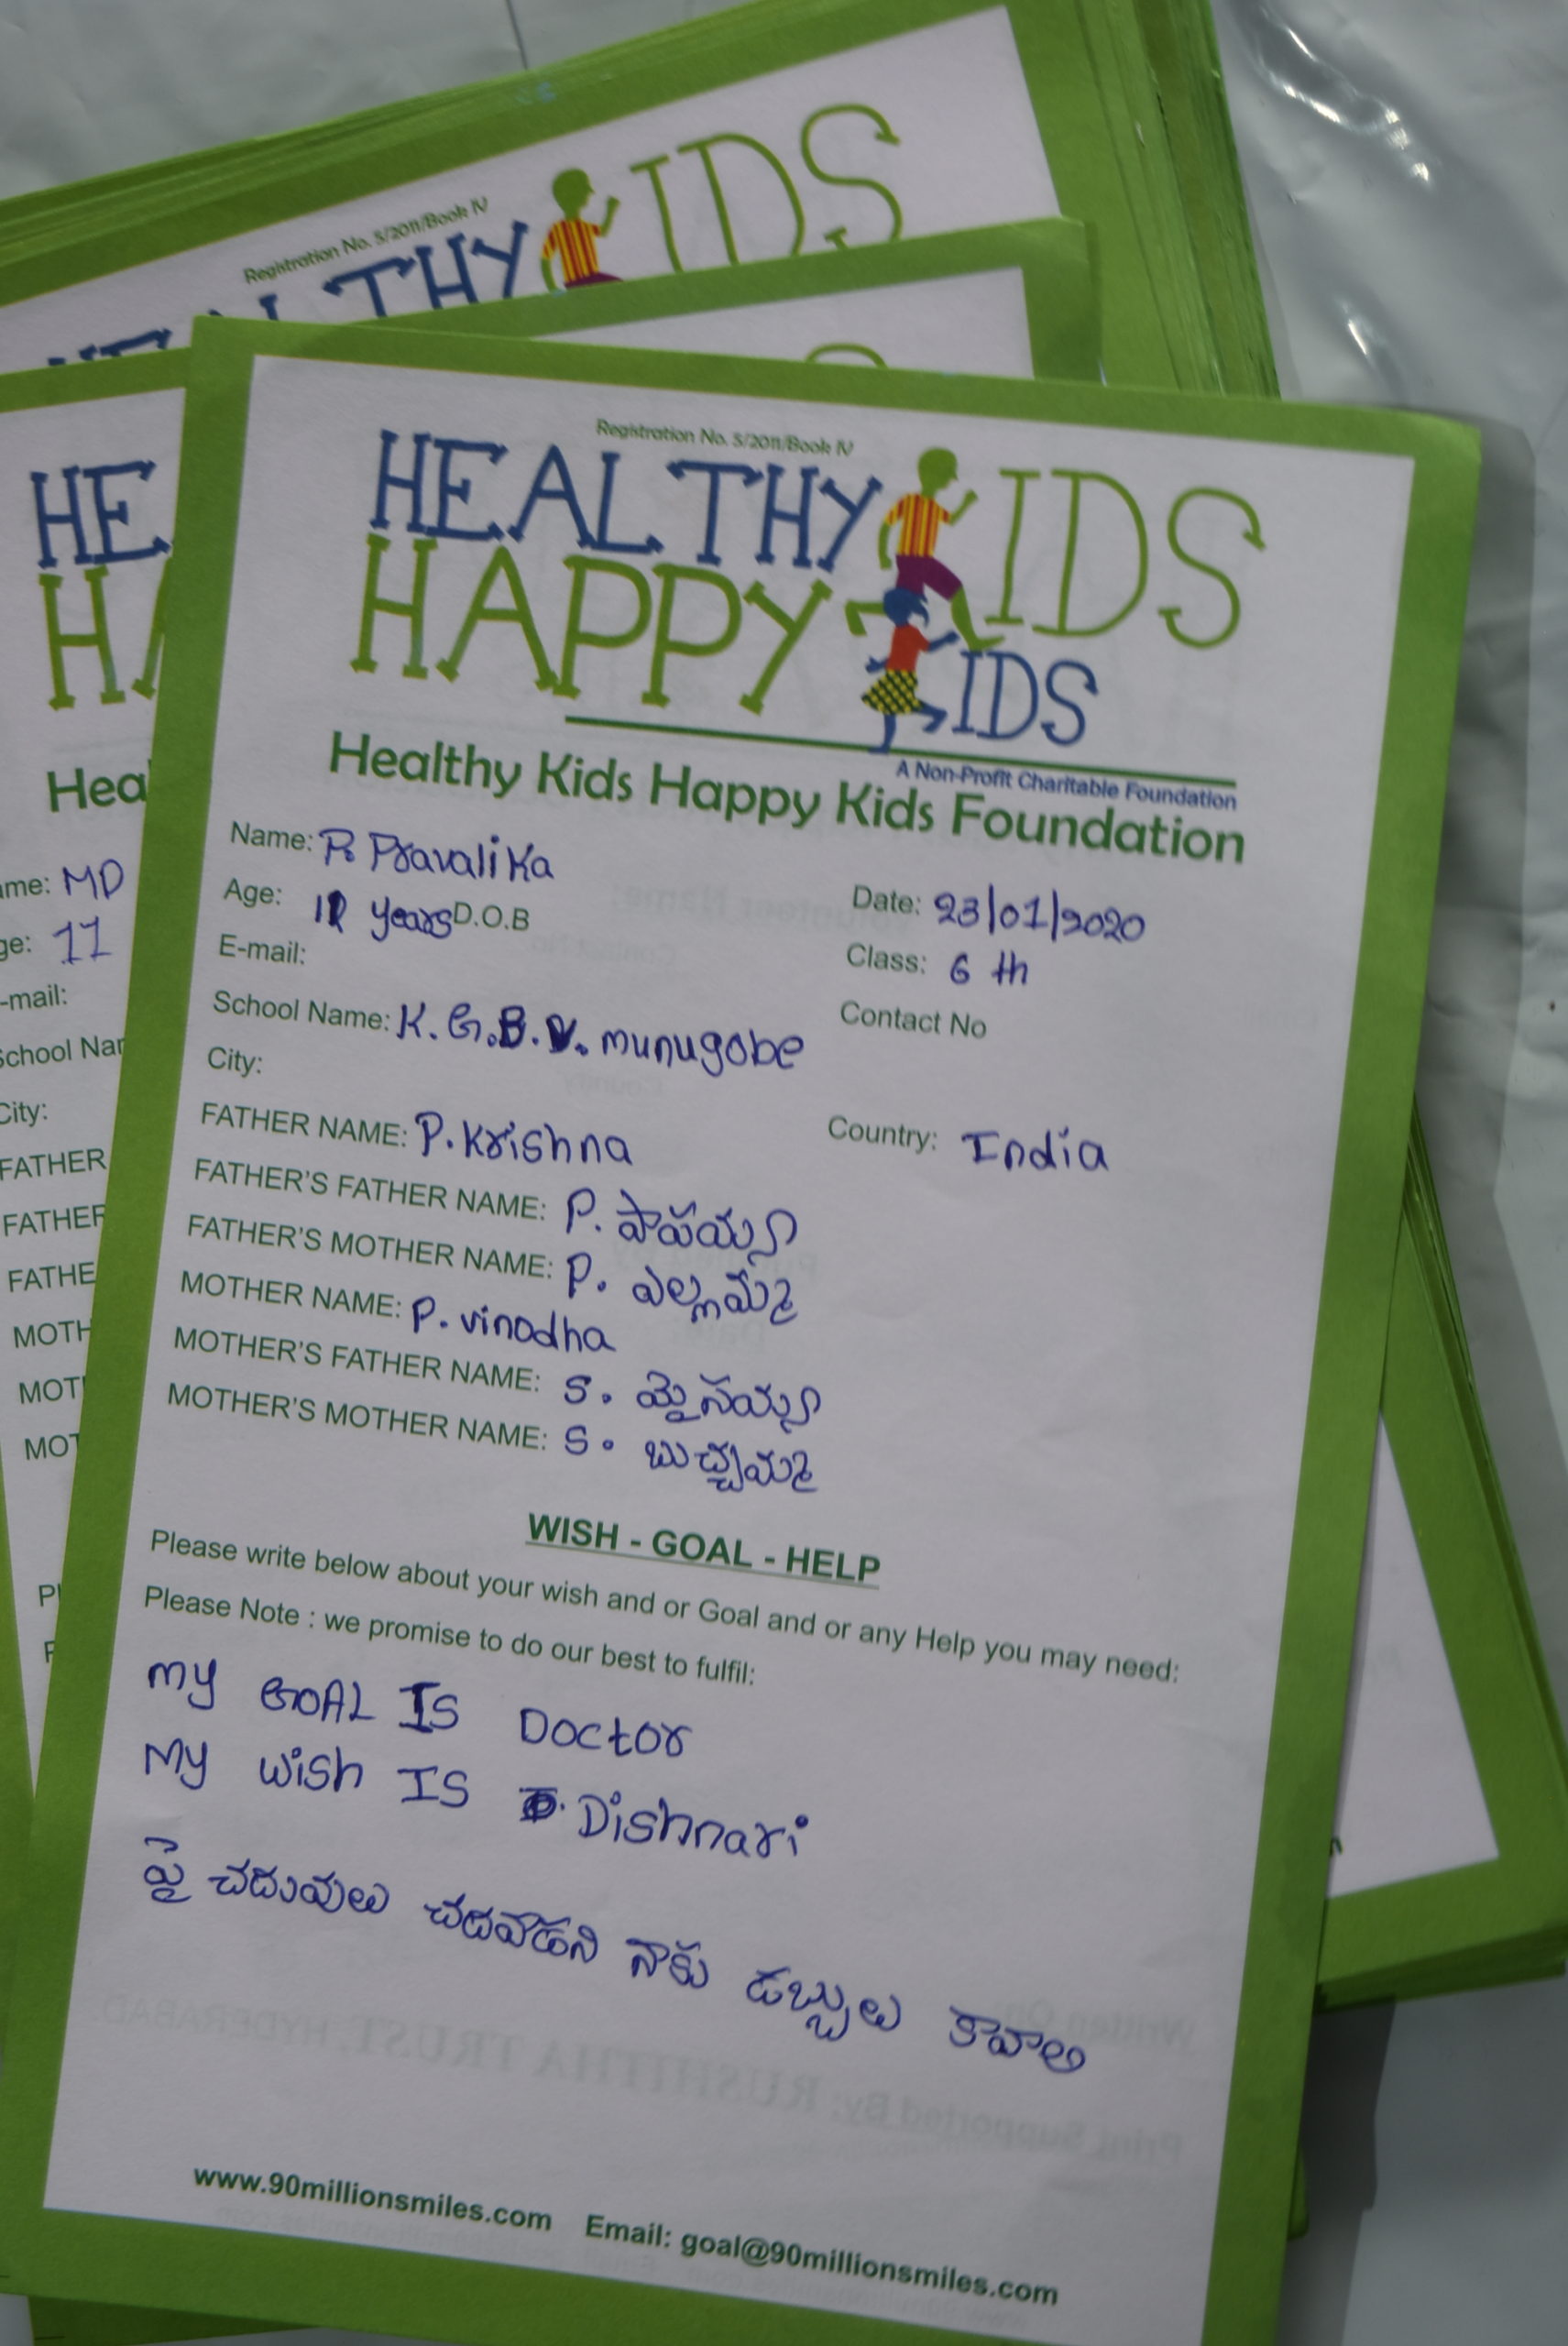 Registration No. 5/2011/Book IV
HEALTHY KIDS
Registration No. 5/2011/Book IV
HEALTHY KIDS
HAPPY KIDS
A Non-Profit Charitable Foundation
Healthy Kids Happy Kids Foundation
Name: P. Pravalika
Date: 23/01/2020
Age: years D.O.B
Class: 6 th
E-mail:
Contact No
School Name: K.G.B.V. munugobe
City:
Country: India
FATHER NAME: P. Krishna
FATHER'S FATHER NAME: P. పాపయ్య
FATHER'S MOTHER NAME: P. ఎల్లమ్మ
MOTHER NAME: P. vinodha
MOTHER'S FATHER NAME: S. మైసయ్య
MOTHER'S MOTHER NAME: S. బుచ్చమ్మ
WISH - GOAL - HELP
Please write below about your wish and or Goal and or any Help you may need:
Please Note : we promise to do our best to fulfil:
my GOAL IS Doctor
My wish IS Dishnari
పై చదువులు చదవాడని నాకు డబ్బులు కావాలి
www.90millionsmiles.com Email: goal@90millionsmiles.com
HE
HA
Hea
ame: MD
ge: 11
-mail:
School Nar
City:
FATHER
FATHER
FATHE
MOTH
MOT
MOT